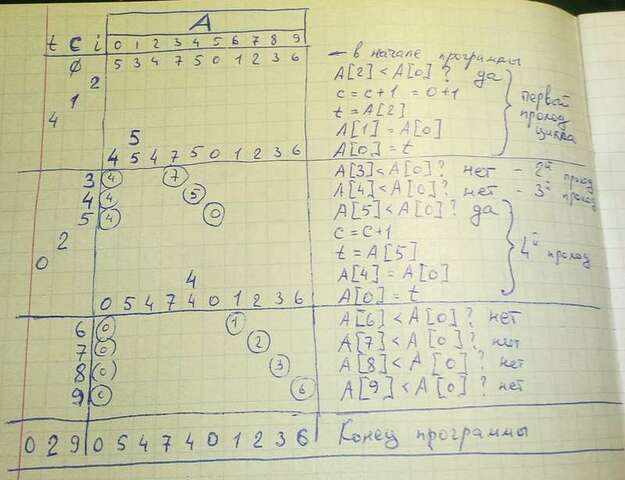 A
t c i 0 1 2 3 4 5 6 7 8 9
0 5 3 4 7 5 0 1 2 3 6 — в начале программы
2 A[2] < A[0] ? да
1 c = c+1 = 0+1
4 t = A[2]
5 A[1] = A[0]
4 5 4 7 5 0 1 2 3 6 A[0] = t
первый проход цикла
3 4 7 A[3] < A[0] ? нет - 2й проход
4 4 5 A[4] < A[0] ? нет - 3й проход
5 4 0 A[5] < A[0] ? да
2 c = c+1
0 t = A[5]
4 A[4] = A[0]
0 5 4 7 4 0 1 2 3 6 A[0] = t
4й проход
6 0 1 A[6] < A[0] ? нет
7 0 2 A[7] < A[0] ? нет
8 0 3 A[8] < A[0] ? нет
9 0 6 A[9] < A[0] ? нет
0 2 9 0 5 4 7 4 0 1 2 3 6 Конец программы